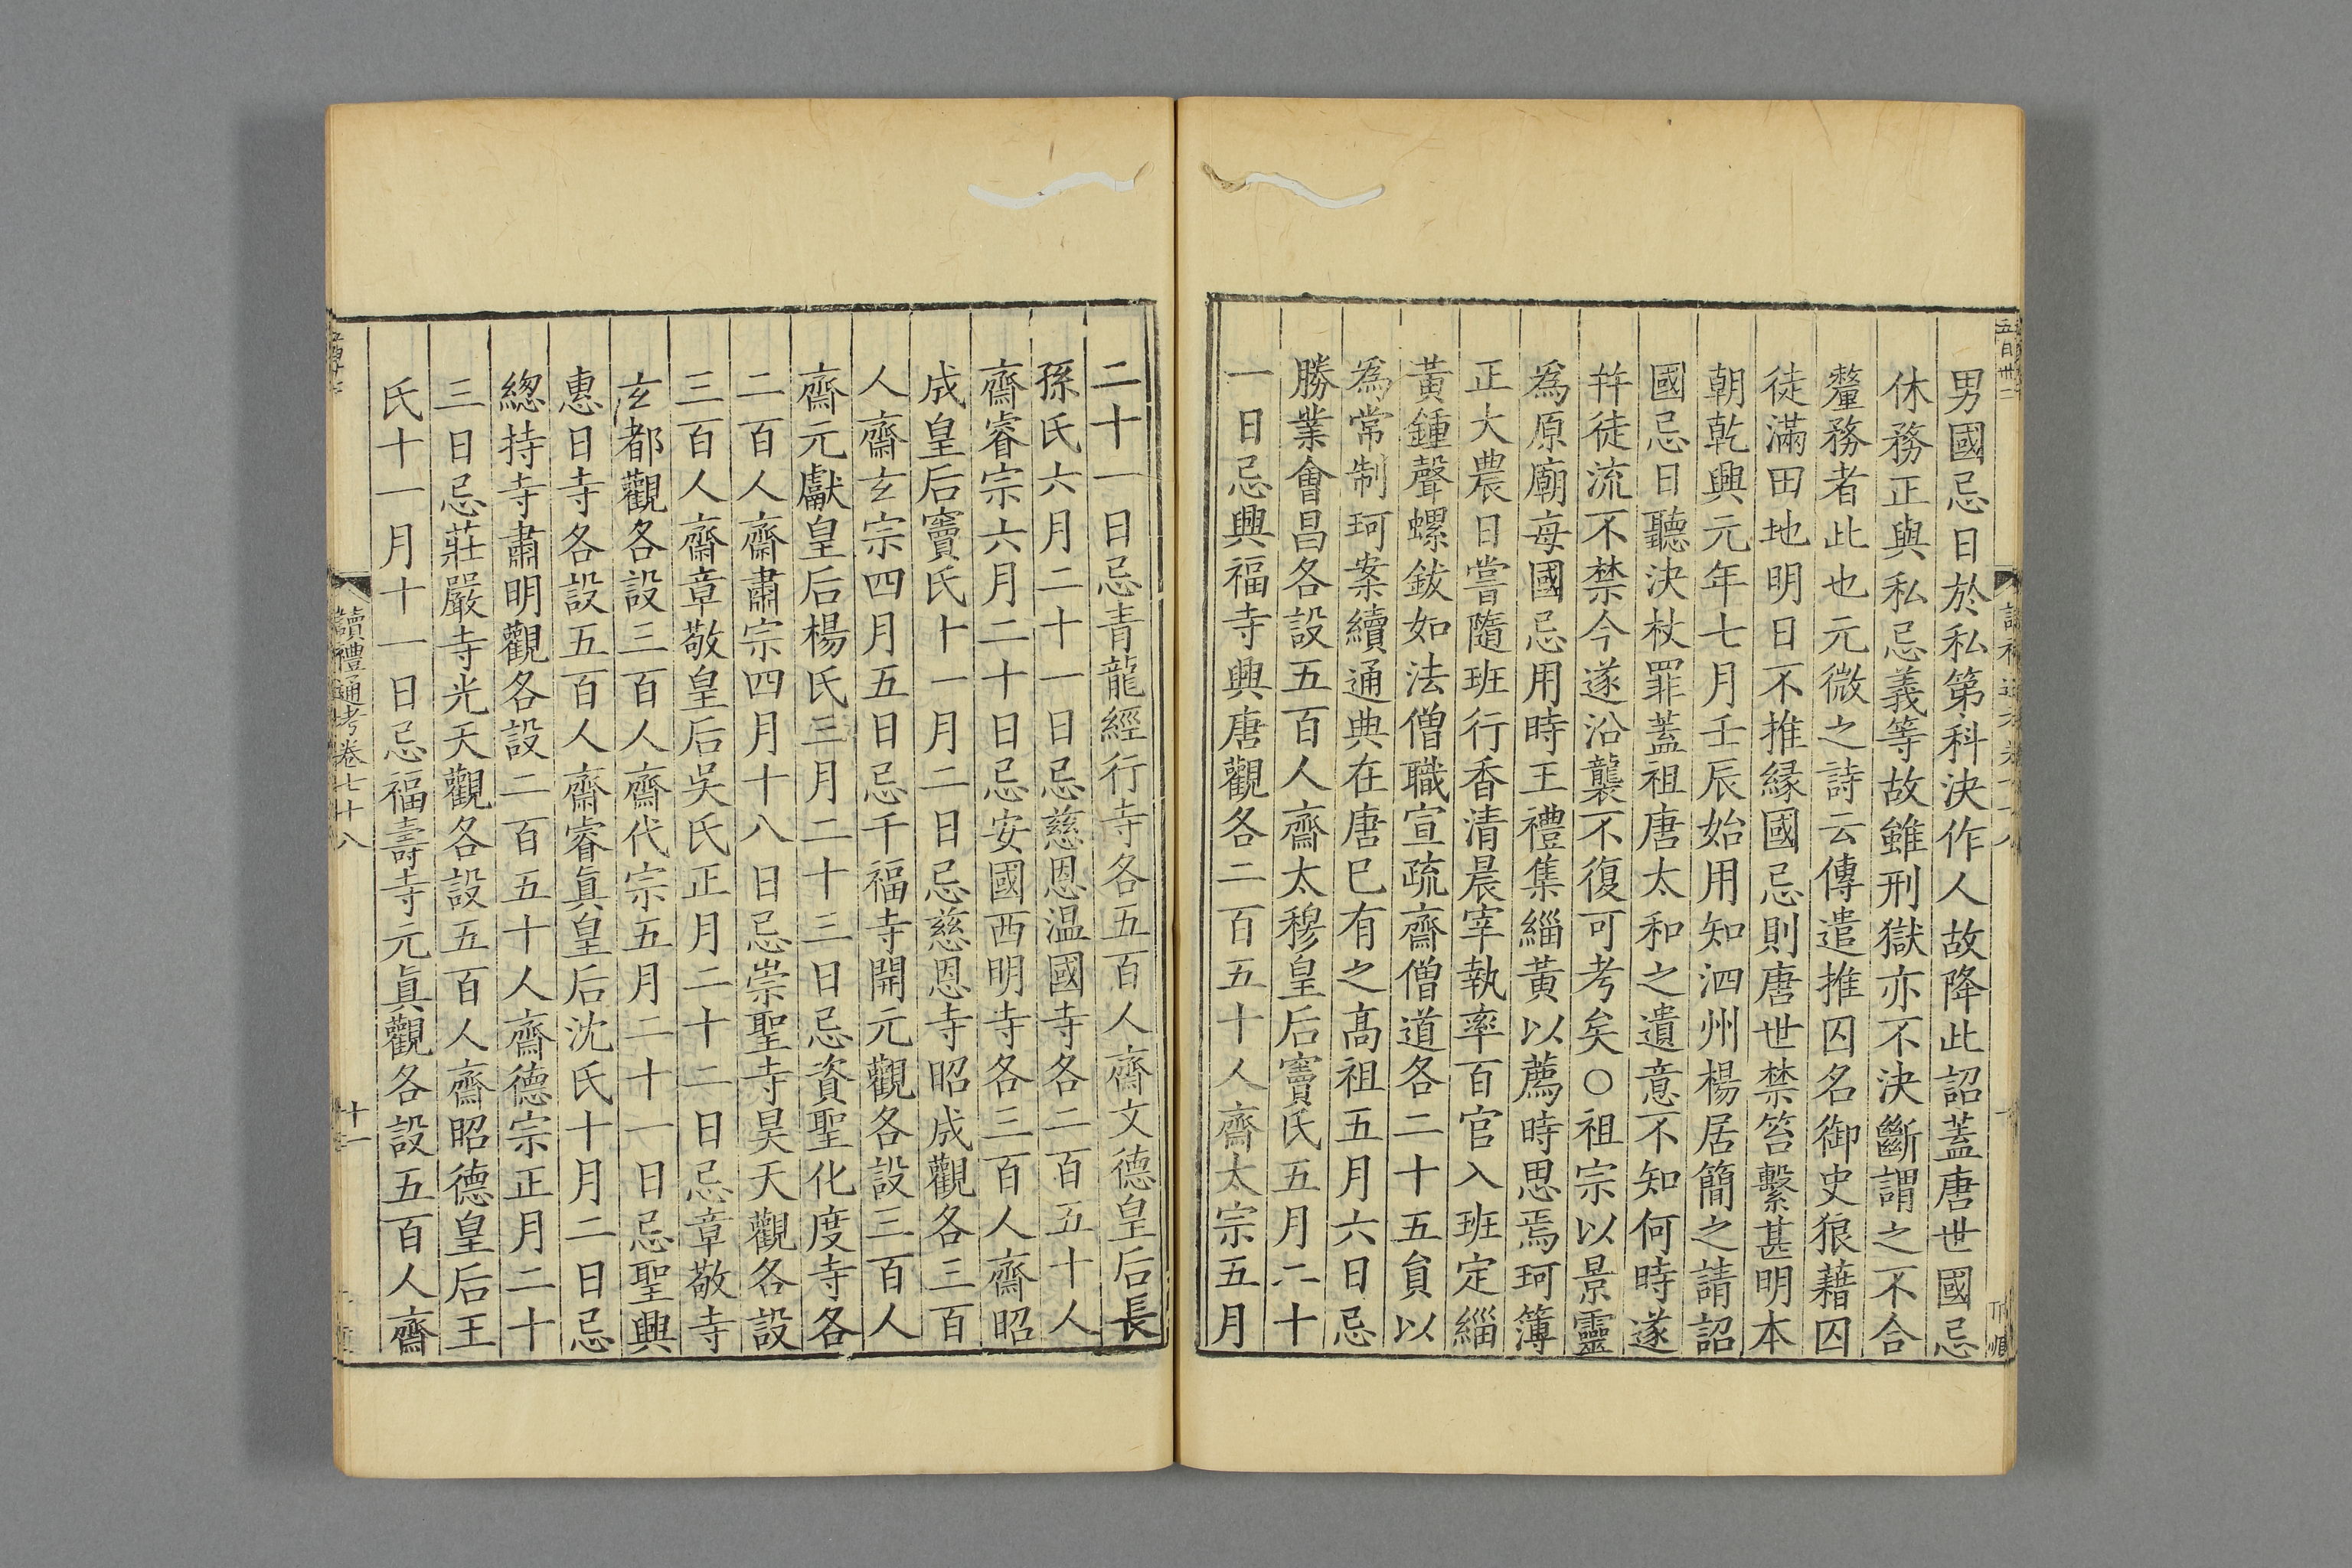 男國忌日於私第科決作人故降此詔蓋唐世國忌
休務正與私忌義等故雖刑獄亦不決斷謂之不合
釐務者此也元微之詩云傳遣推囚名御史狼藉囚
徒滿田地明日不推緣國忌則唐世禁笞繫甚明本
朝乾興元年七月壬辰始用知泗州楊居簡之請詔
國忌日聽決杖罪蓋祖唐太和之遺意不知何時遂
并徒流不禁今遂沿襲不復可考矣○祖宗以景靈
為原廟每國忌用時王禮集緇黃以薦時思焉珂簿
正大農日嘗隨班行香清晨宰執率百官入班定緇
黃鍾聲螺鈸如法僧職宣疏齋僧道各二十五員以
為常制珂案續通典在唐已有之高祖五月六日忌
勝業會昌各設五百人齋太穆皇后竇氏五月二十
一日忌興福寺興唐觀各二百五十人齋太宗五月
二十一日忌青龍經行寺各五百人齋文德皇后長
孫氏六月二十一日忌慈恩温國寺各二百五十人
齋睿宗六月二十日忌安國西明寺各三百人齋昭
成皇后竇氏十一月二日忌慈恩寺昭成觀各三百
人齋玄宗四月五日忌千福寺開元觀各設三百人
齋元獻皇后楊氏三月二十三日忌資聖化度寺各
二百人齋肅宗四月十八日忌崇聖寺昊天觀各設
三百人齋章敬皇后吳氏正月二十二日忌章敬寺
玄都觀各設三百人齋代宗五月二十一日忌聖興
惠日寺各設五百人齋睿眞皇后沈氏十月二日忌
緫持寺肅明觀各設二百五十人齋德宗正月二十
三日忌莊嚴寺光天觀各設五百人齋昭德皇后王
氏十一月十一日忌福壽寺元眞觀各設五百人齋
讀禮通考卷七十八
十一